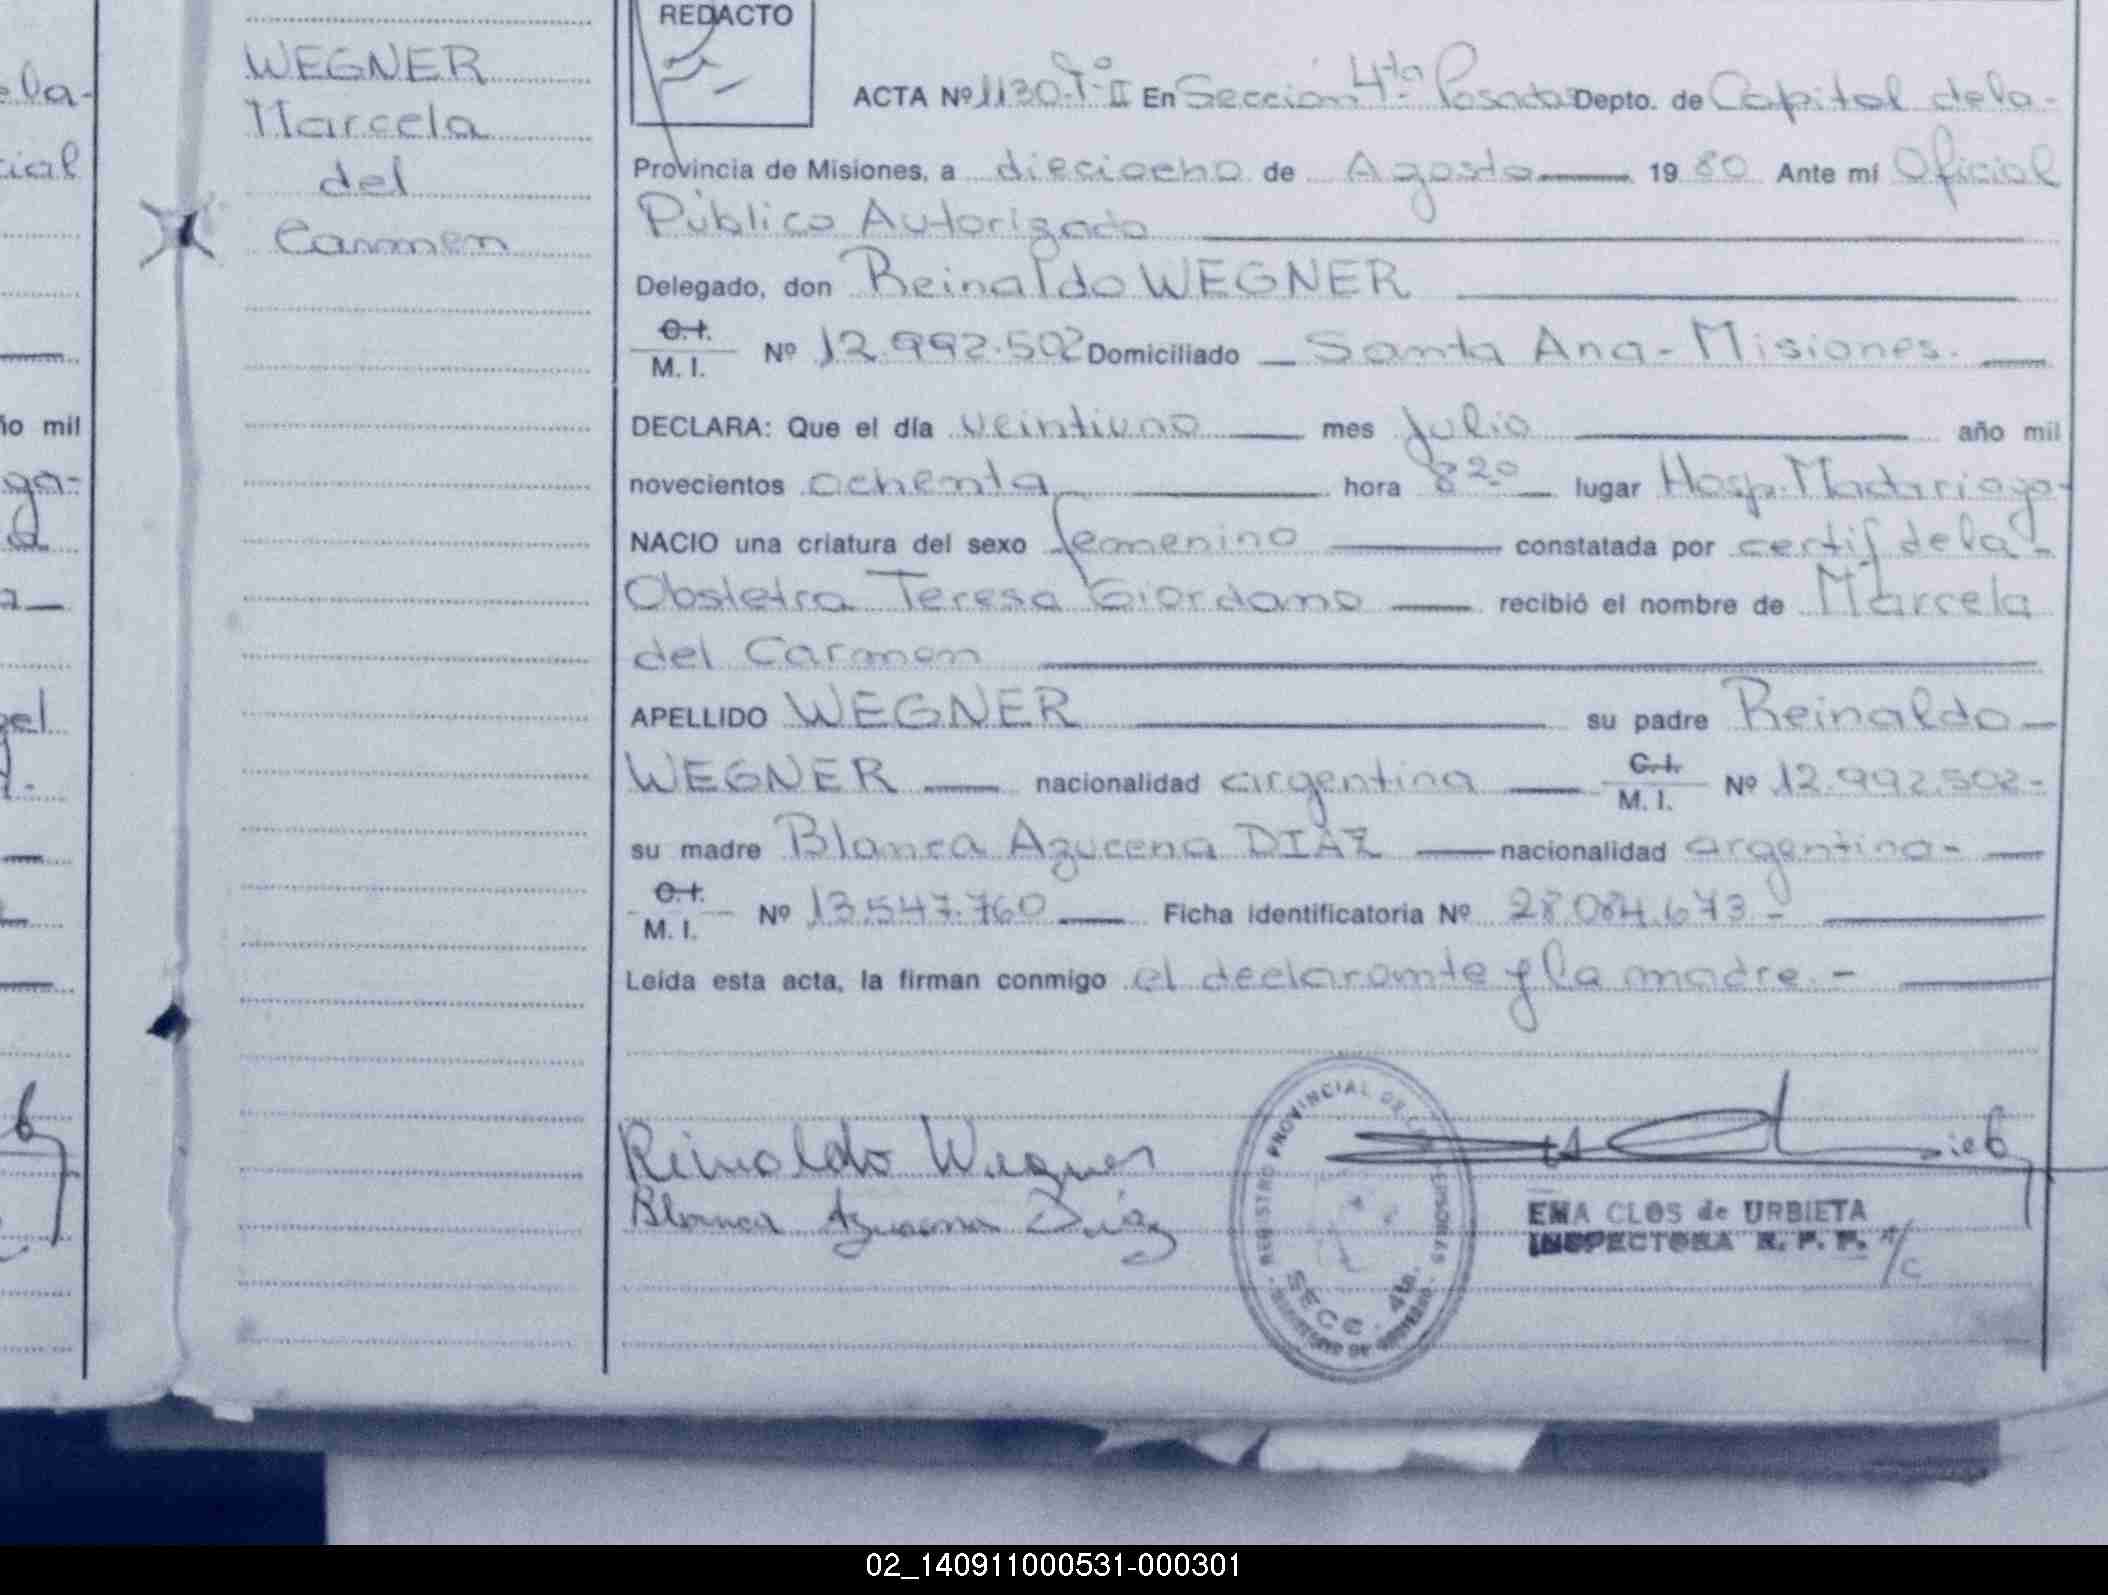 REDACTO
WEGNER
Marcela
del
Carmen
ACTA Nº 1130-Tº-II En Sección 4ta Posadas Depto. de Capital de la-
Provincia de Misiones, a dieciocho de Agosto 1980 Ante mí Oficial
Público Autorizado
Delegado, don Reinaldo WEGNER
C.I.
M. I. Nº 12.992.502 Domiciliado Santa Ana - Misiones.
DECLARA: Que el día veintiuno mes Julio año mil
novecientos ochenta hora 8 20 lugar Hosp. Madariaga-
NACIO una criatura del sexo femenino constatada por certif de la-
Obstetra Teresa Giordano recibió el nombre de Marcela
del Carmen
APELLIDO WEGNER su padre Reinaldo
WEGNER nacionalidad argentina C.I. M. I. Nº 12.992.502-
su madre Blanca Azucena DIAZ nacionalidad argentina-
C.I.
M. I. Nº 13.547.760 Ficha identificatoria Nº 28.084.673-
Leída esta acta, la firman conmigo el declarante y la madre.-
Reinaldo Wegner
Blanca Azucena Diaz
REGISTRO PROVINCIAL DE LAS PERSONAS
SECC. 4ta.
EMA CLOS de URBIETA
INSPECTORA R. P. P. A/C
ño mil
02_140911000531-000301